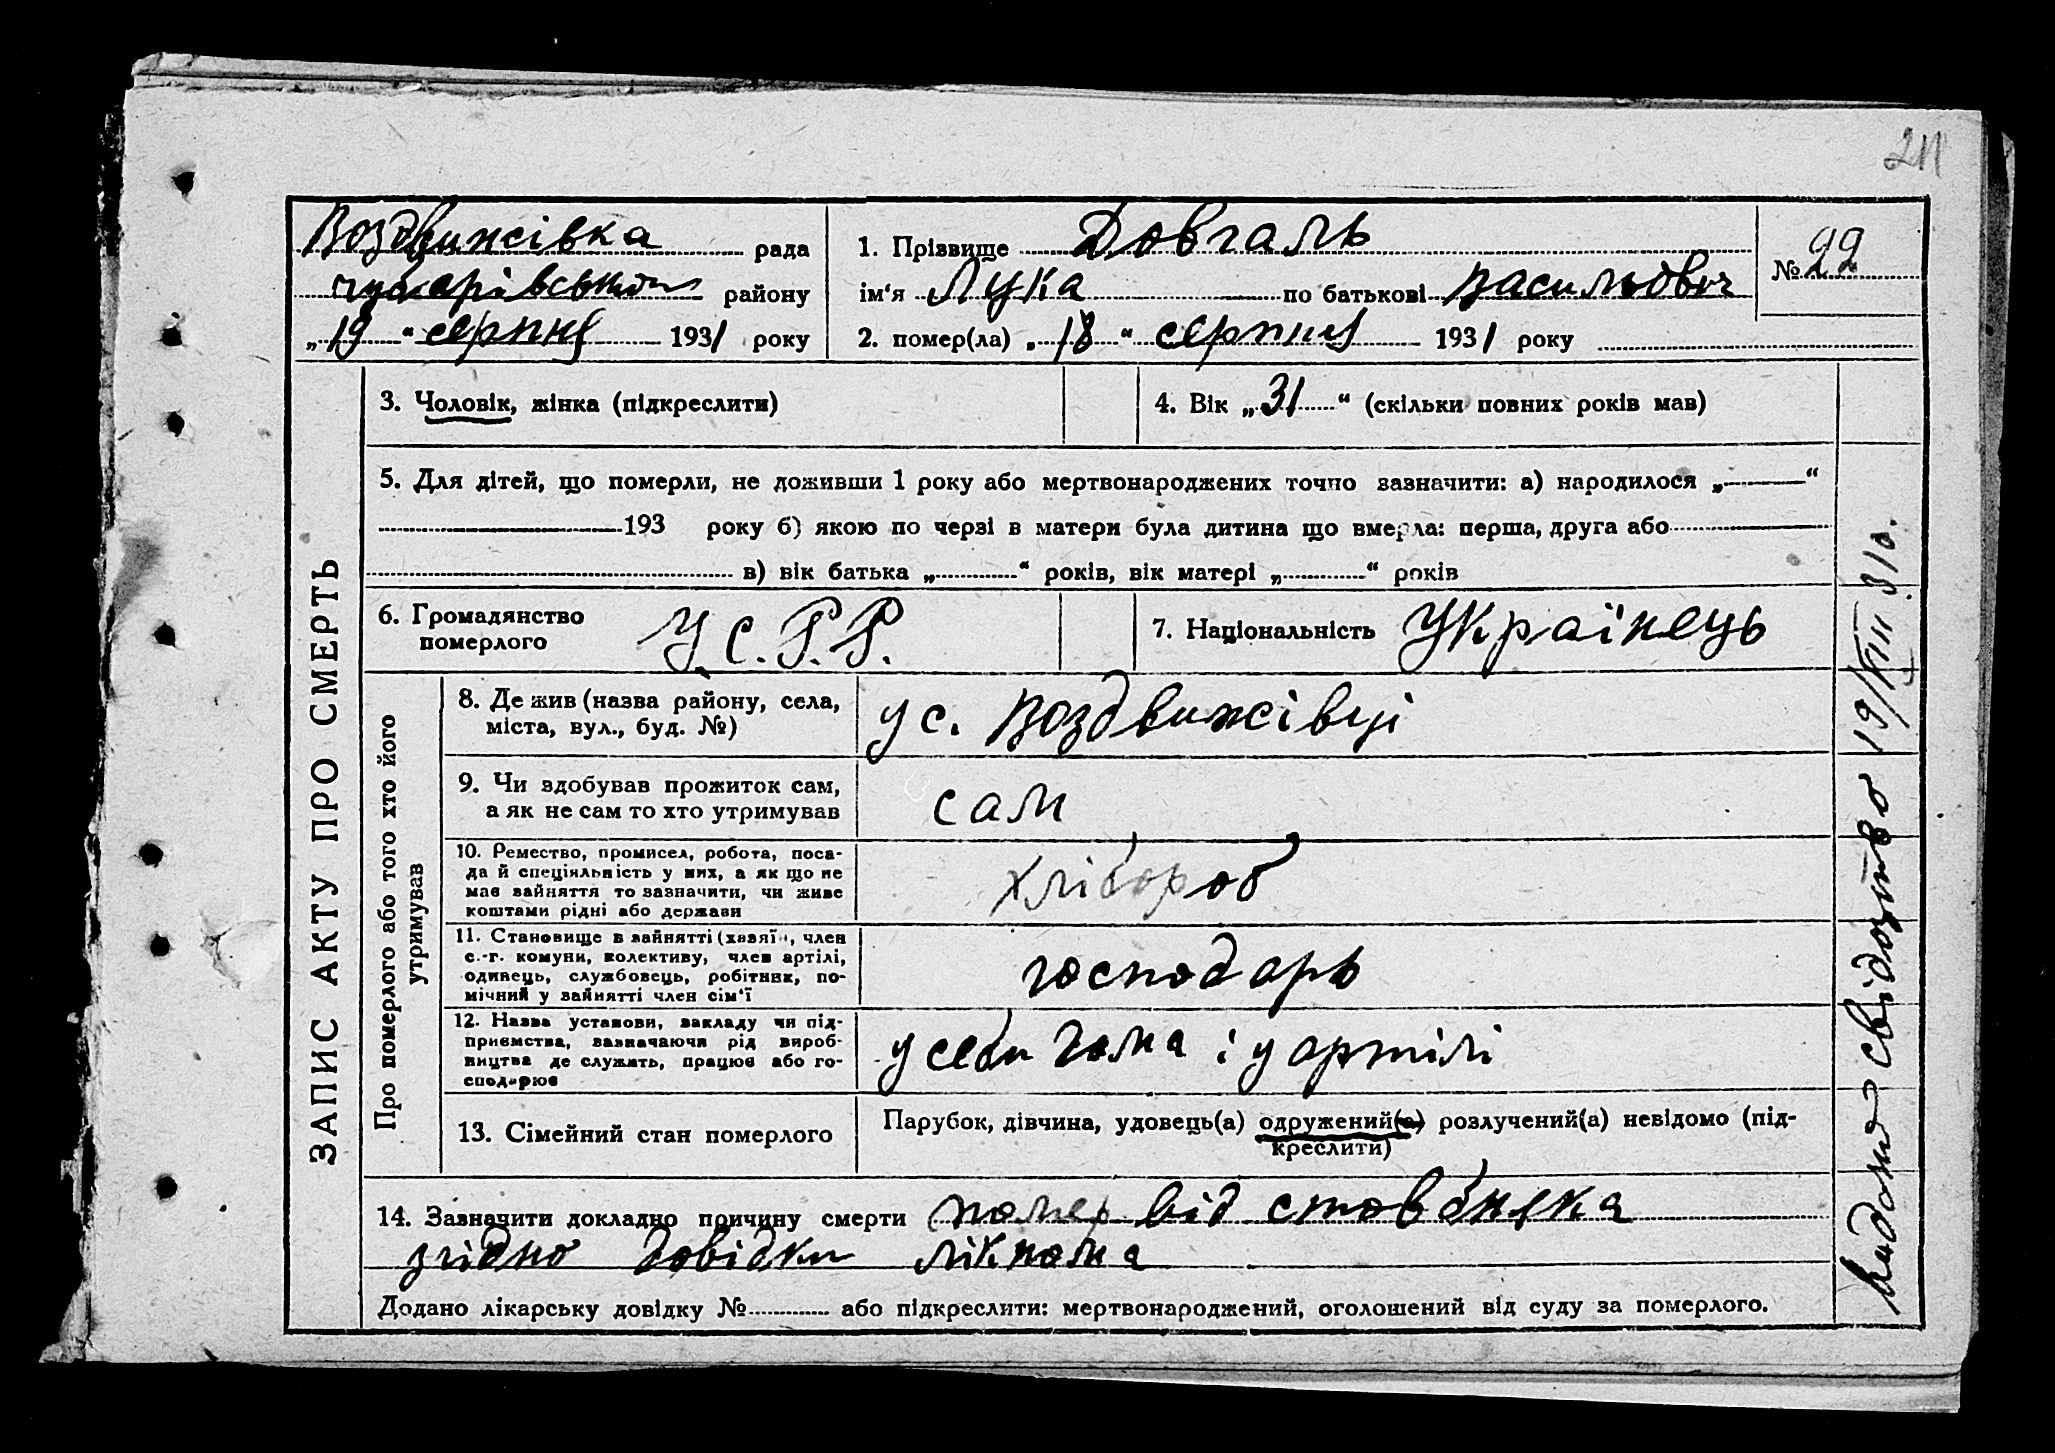 211
Воздвижівка рада
Чубарівського району
„19“ серпня 1931 року
1. Прізвище Довгаль
ім‘я Лука по батькові Васильович
№ 22
2. помер(ла) „18“ серпня 1931 року
ЗАПИС АКТУ ПРО СМЕРТЬ
3. Чоловік, жінка (підкреслити)
4. Вік „31“ (скільки повних років мав)
5. Для дітей, що померли, не доживши 1 року або мертвонароджених точно зазначити: а) народилося „ “
193 року б) якою по черзі в матери була дитина що вмерла: перша, друга або
в) вік батька „ “ років, вік матері „ “ років
6. Громадянство
померлого
У.С.Р.Р.
7. Національність Українець
Про померлого або того хто його
утримував
8. Де жив (назва району, села,
міста, вул., буд. №)
у с. Воздвижівці
9. Чи здобував прожиток сам,
а як не сам то хто утримував
сам
10. Ремество, промисел, робота, поса-
да й спеціяльність у них, а як що не
мав зайняття то зазначити, чи живе
коштами рідні або держави
хлібороб
11. Становище в зайнятті (хазяїн, член
с.-г. комуни, колективу, член артілі,
одинець, службовець, робітник, по-
мічний у зайнятті член сім‘ї
господарь
12. Назва установи, закладу чи під-
приємства, зазначаючи рід вироб-
ництва де служить, працює або го-
сподарює
у себи дома і у артілі
13. Сімейний стан померлого
Парубок, дівчина, удовець(а) одружений(а) розлучений(а) невідомо (під-
креслити)
14. Зазначити докладно причину смерти помер від стовбняка
згідно довідки лікпома
Додано лікарську довідку № або підкреслити: мертвонароджений, оголошений від суду за померлого.
Видано свідоцтво 19/VIII 31р.